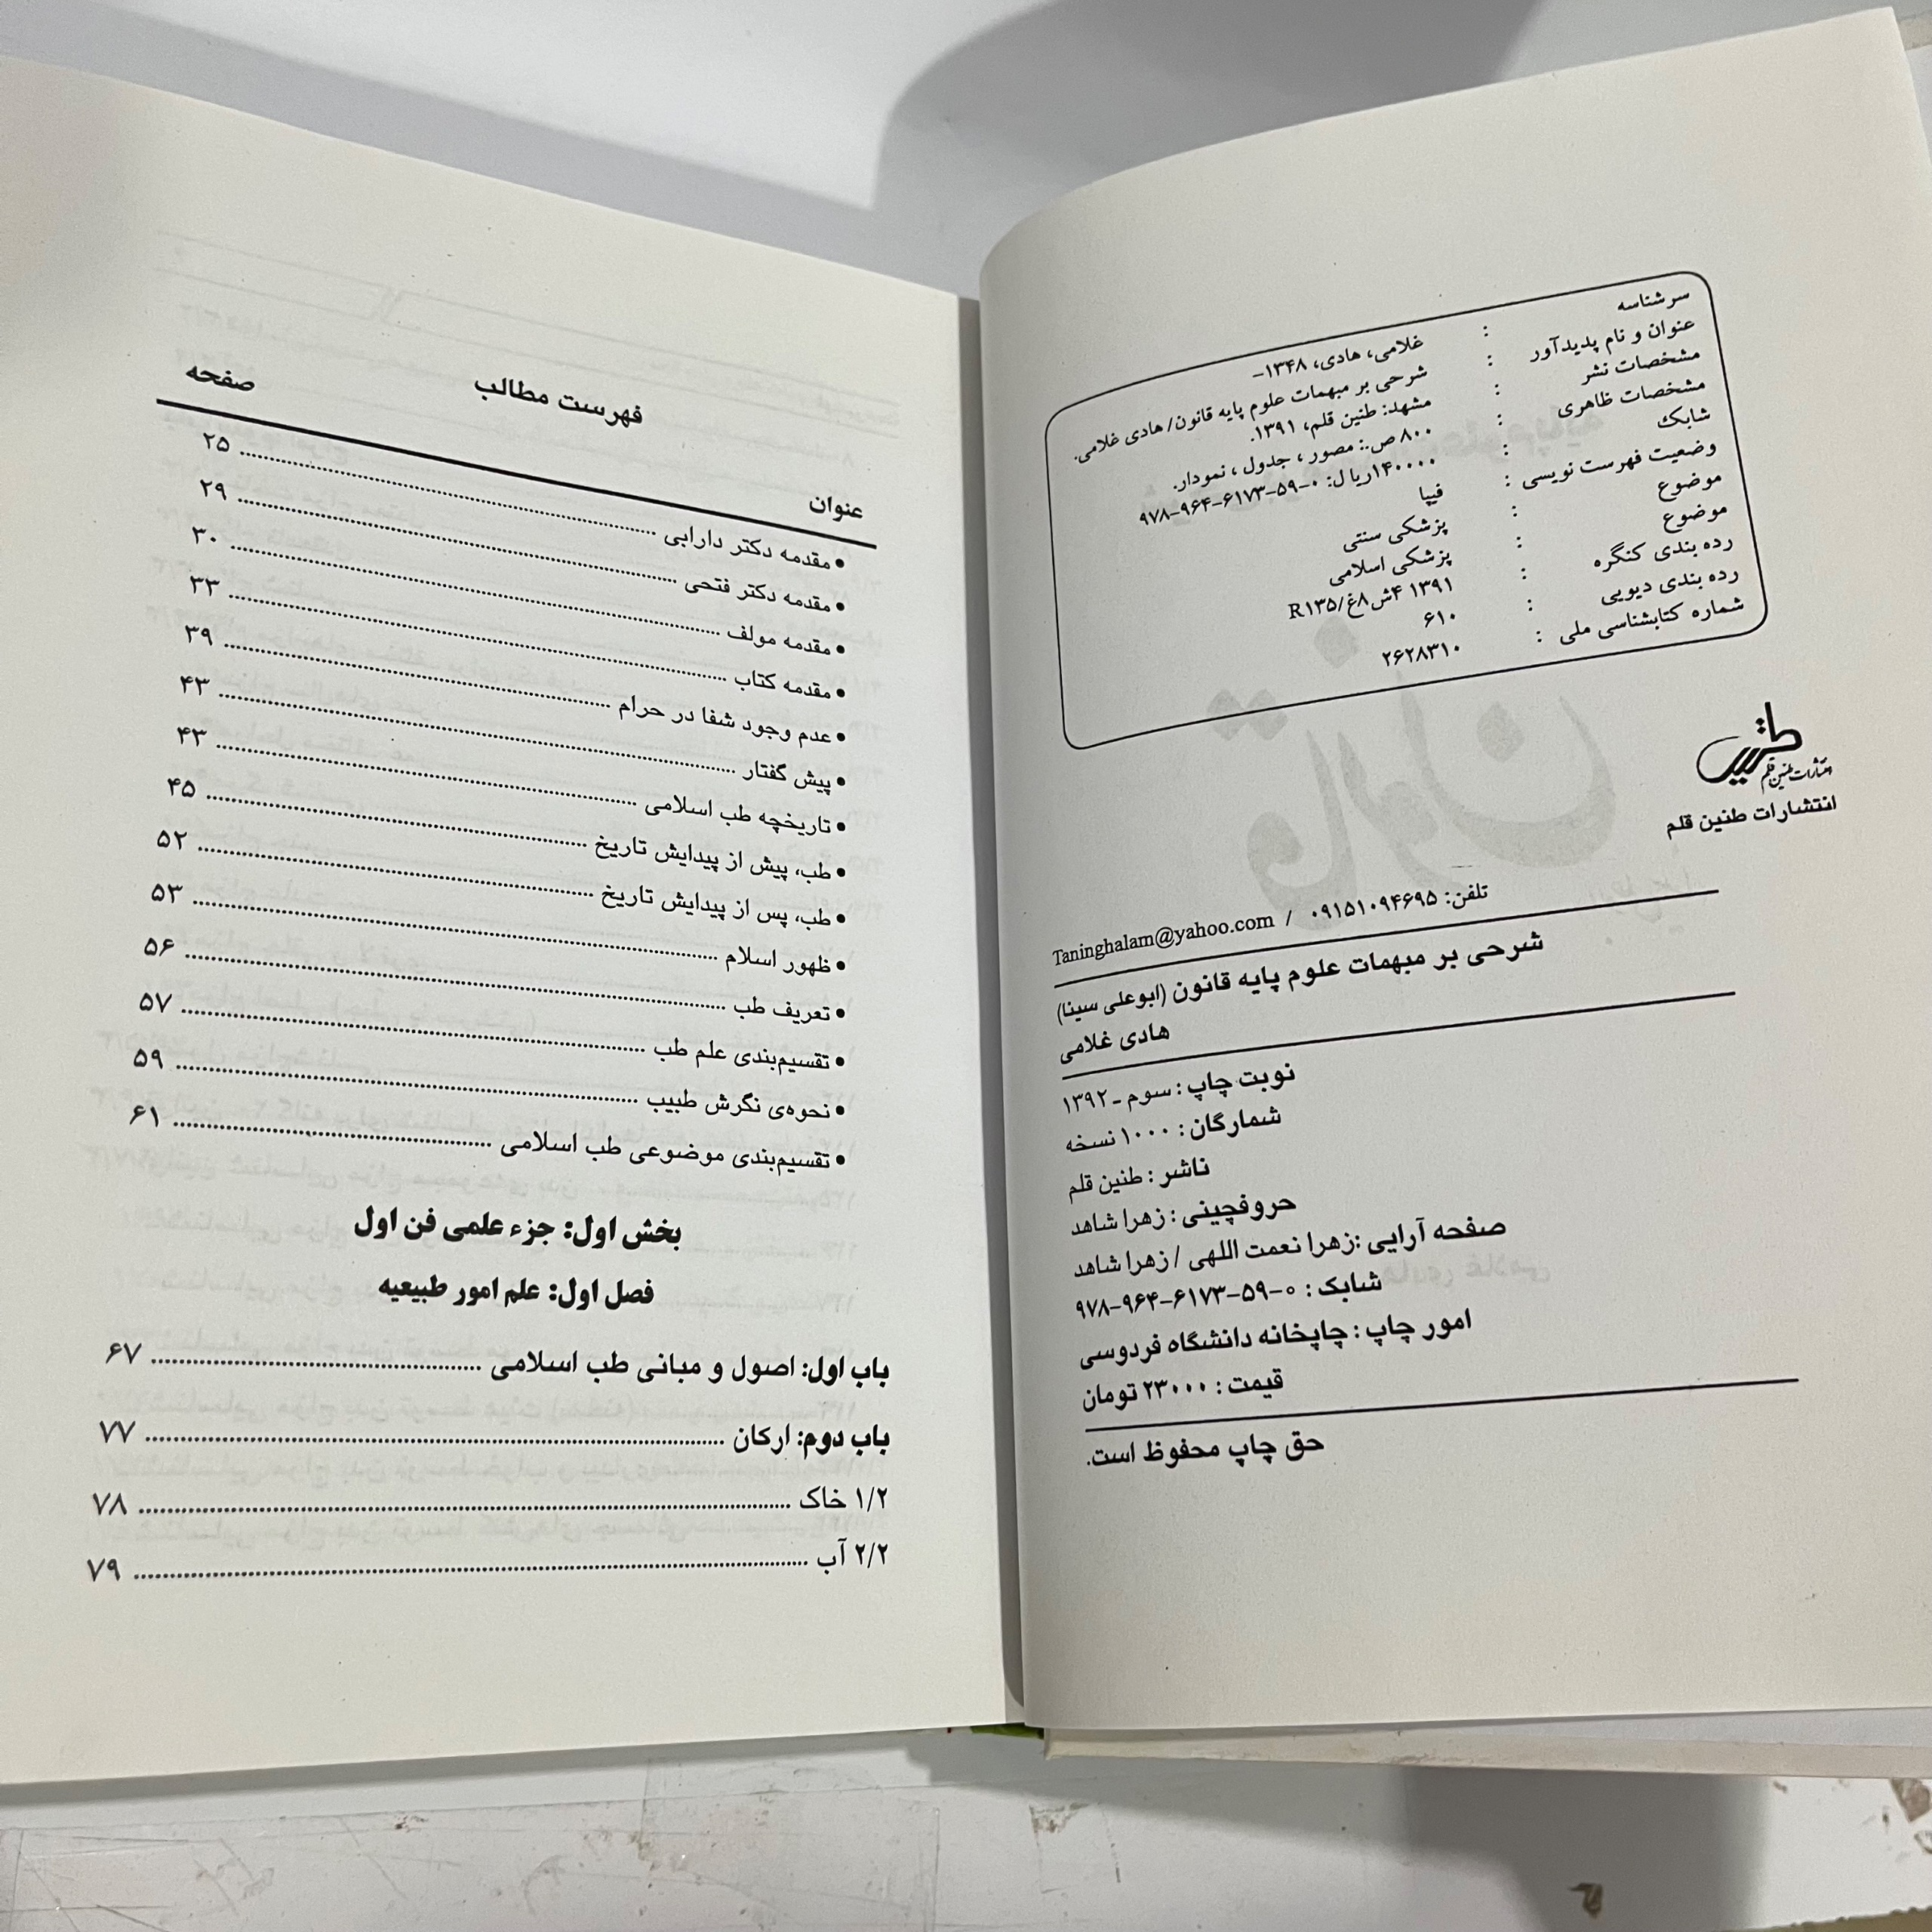 سرشناسه : غلامی، هادی، ۱۳۴۸-
عنوان و نام پدیدآور : شرحی بر مبهمات علوم پایه قانون/ هادی غلامی.
مشخصات نشر : مشهد: طنین قلم، ۱۳۹۱.
مشخصات ظاهری : ۸۰۰ ص.: مصور ، جدول ، نمودار.
شابک : ۱۴۰۰۰۰ریال: ۰-۵۹-۶۱۷۳-۹۶۴-۹۷۸
وضعیت فهرست نویسی : فیپا
موضوع : پزشکی سنتی
موضوع : پزشکی اسلامی
رده بندی کنگره : ۱۳۹۱ ۴ش۸غ/R۱۳۵
رده بندی دیویی : ۶۱۰
شماره کتابشناسی ملی : ۲۶۲۸۳۱۰
طنین
انتشارات طنین قلم
انتشارات طنین قلم
تلفن: ۰۹۱۵۱۰۹۴۶۹۵ / Taninghalam@yahoo.com
شرحی بر مبهمات علوم پایه قانون (ابوعلی سینا)
هادی غلامی
نوبت چاپ : سوم - ۱۳۹۲
شمارگان : ۱۰۰۰ نسخه
ناشر : طنین قلم
حروفچینی : زهرا شاهد
صفحه آرایی :زهرا نعمت اللهی / زهرا شاهد
شابک : ۰-۵۹-۶۱۷۳-۹۶۴-۹۷۸
امور چاپ : چاپخانه دانشگاه فردوسی
قیمت : ۲۳۰۰۰ تومان
حق چاپ محفوظ است.
فهرست مطالب
عنوان صفحه
• مقدمه دکتر دارابی ........ ۲۵
• مقدمه دکتر فتحی ........ ۲۹
• مقدمه مولف ........ ۳۰
• مقدمه کتاب ........ ۳۳
• عدم وجود شفا در حرام ........ ۳۹
• پیش گفتار ........ ۴۳
• تاریخچه طب اسلامی ........ ۴۳
• طب، پیش از پیدایش تاریخ ........ ۴۵
• طب، پس از پیدایش تاریخ ........ ۵۲
• ظهور اسلام ........ ۵۳
• تعریف طب ........ ۵۶
• تقسیم‌بندی علم طب ........ ۵۷
• نحوه‌ی نگرش طبیب ........ ۵۹
• تقسیم‌بندی موضوعی طب اسلامی ........ ۶۱
بخش اول: جزء علمی فن اول
فصل اول: علم امور طبیعیه
باب اول: اصول و مبانی طب اسلامی ........ ۶۷
باب دوم: ارکان ........ ۷۷
۱/۲ خاک ........ ۷۸
۲/۲ آب ........ ۷۹